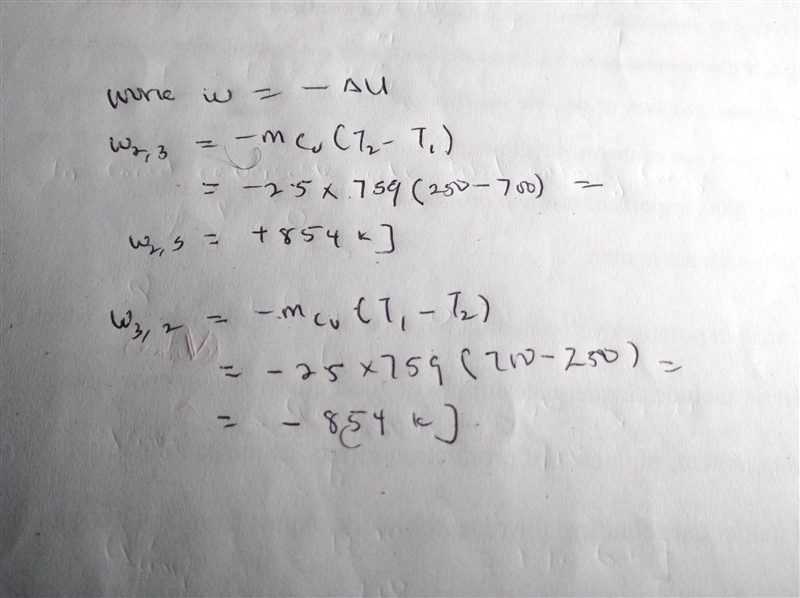 work w = - ΔU
W₂,₃ = -m Cv (T₂ - T₁)
= -2.5 × 759 (250 - 700) =
W₂,₃ = + 854 kJ
W₃,₂ = -m Cv (T₁ - T₂)
= -25 × 759 (700 - 250) =
= - 854 kJ